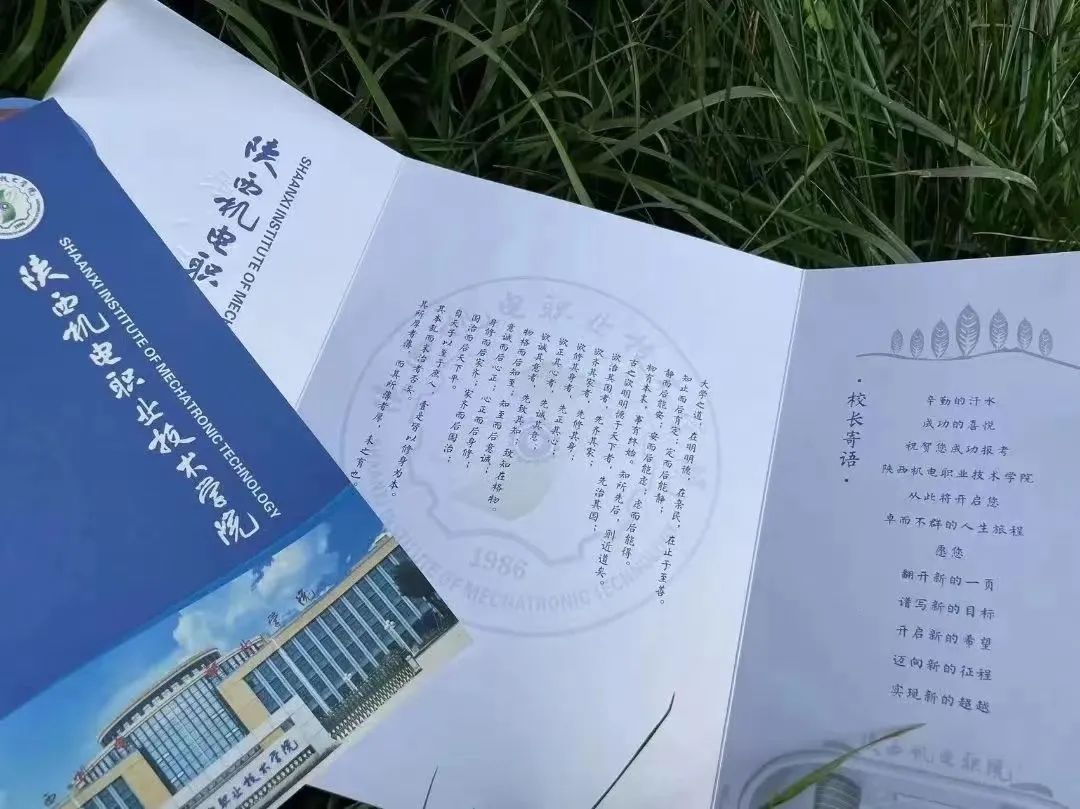 陕西机电职业技术学院
SHAANXI INSTITUTE OF MECHATRONIC TECHNOLOGY
业技术学院
陕西机电职
SHAANXI INSTITUTE OF MEC
大学之道，在明明德，在亲民，在止于至善。
知止而后有定；定而后能静；
静而后能安；安而后能虑；虑而后能得。
物有本末，事有终始。知所先后，则近道矣。
古之欲明明德于天下者，先治其国；
欲治其国者，先齐其家；
欲齐其家者，先修其身；
欲修其身者，先正其心；
欲正其心者，先诚其意；
欲诚其意者，先致其知；致知在格物。
物格而后知至；知至而后意诚；
意诚而后心正；心正而后身修；
身修而后家齐；家齐而后国治；
国治而后天下平。
自天子以至于庶人，壹是皆以修身为本。
其本乱而末治者否矣。
其所厚者薄，而其所薄者厚，未之有也。
1986
INSTITUTE OF MECHATRONIC TECHNOLOGY
·校长寄语·
辛勤的汗水
成功的喜悦
祝贺您成功报考
陕西机电职业技术学院
从此将开启您
卓而不群的人生旅程
愿您
翻开新的一页
谱写新的目标
开启新的希望
迈向新的征程
实现新的超越
陕西机电职院